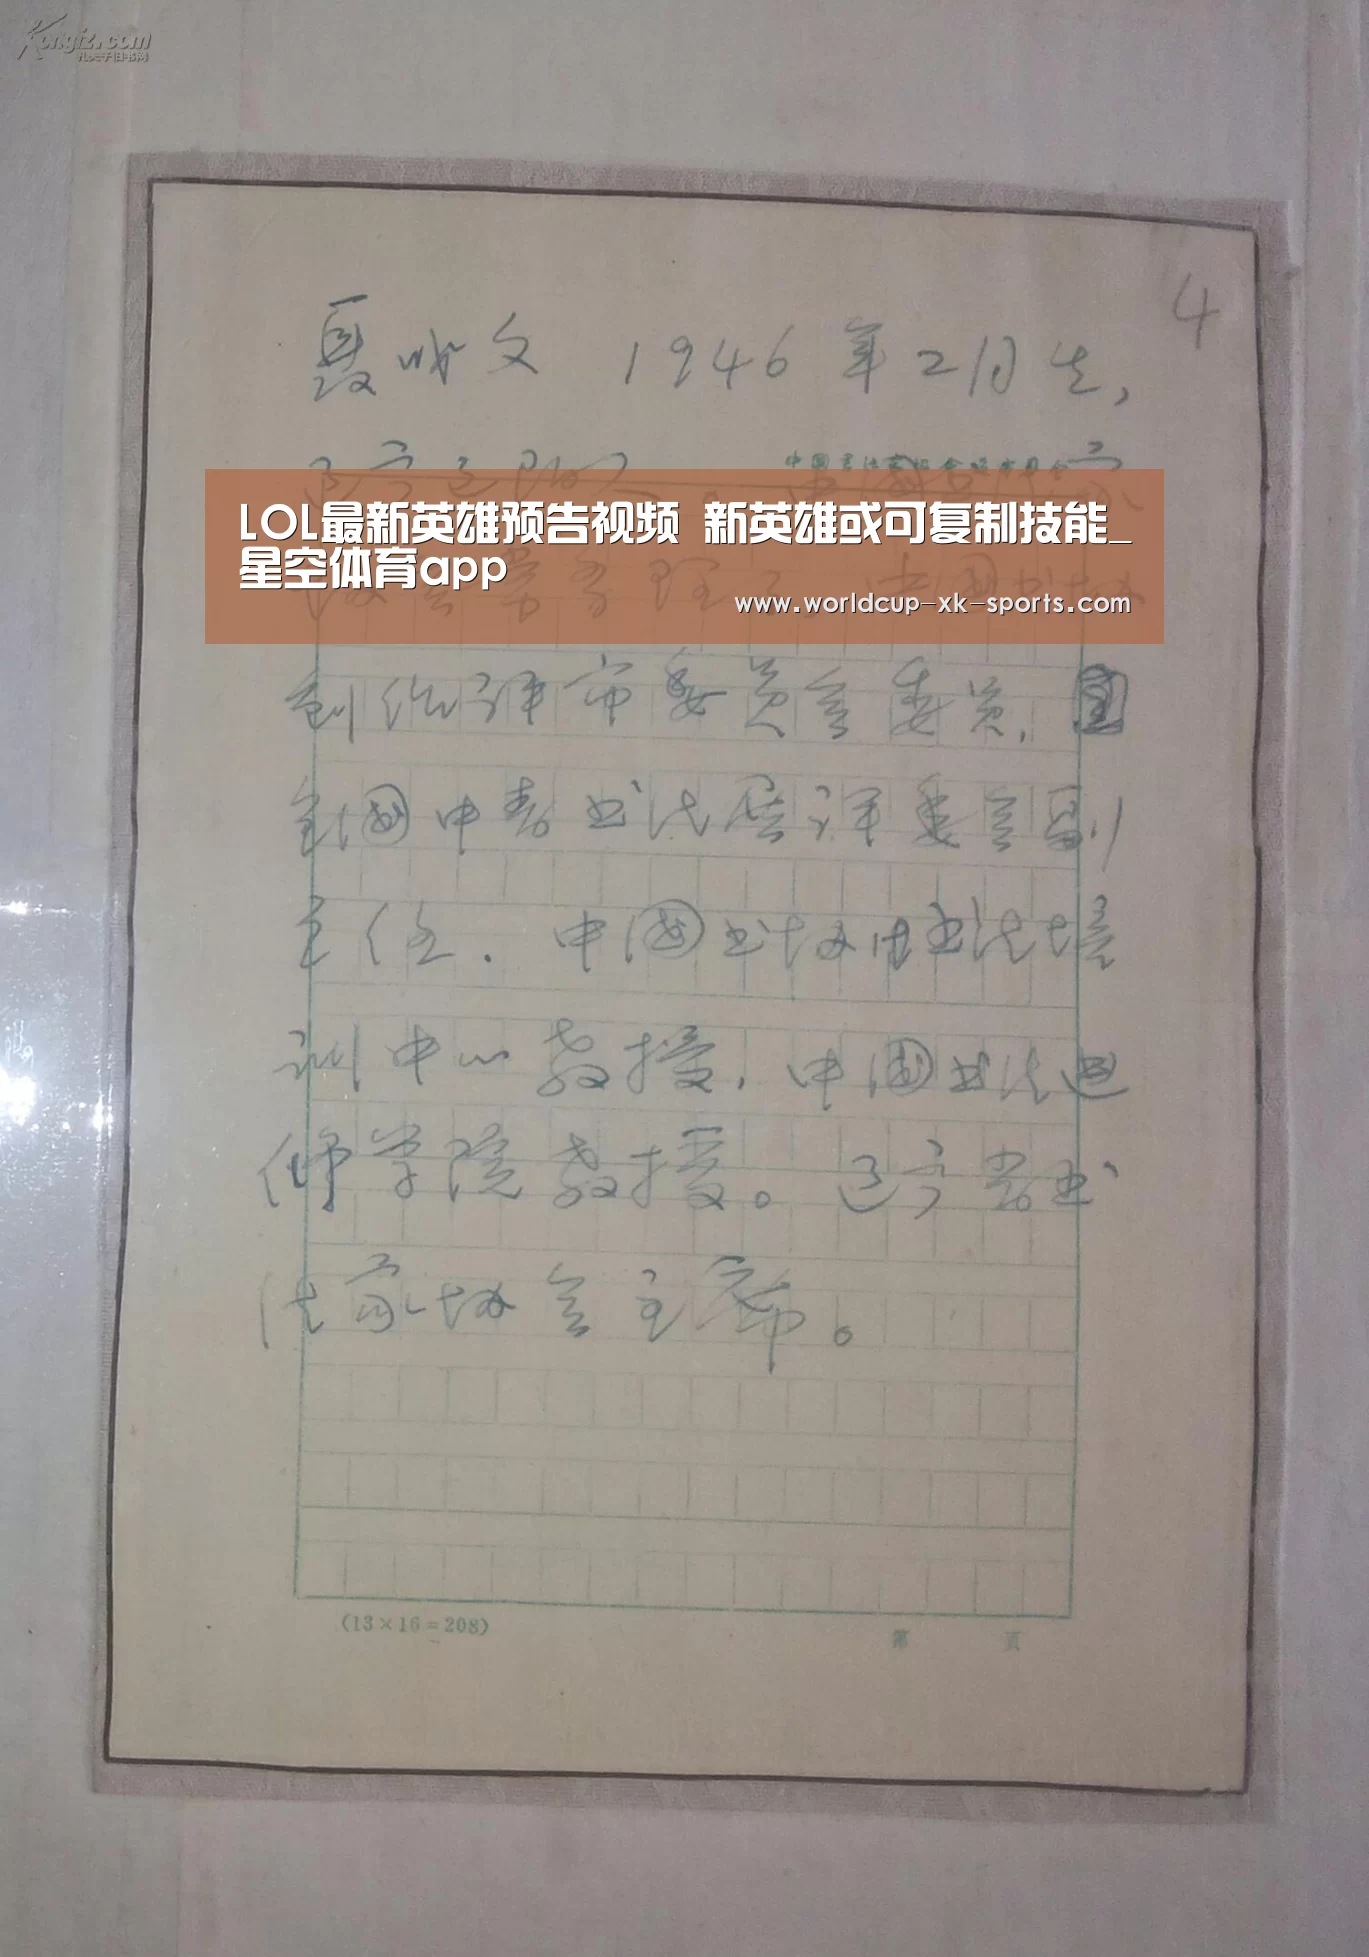 Kongfz.com
孔夫子旧书网
4
聂成文 1946年2月生,
中国书法家协会
LOL最新英雄预告视频 新英雄或可复制技能_
星空体育app
www.worldcup-xk-sports.com
创作评审委员会委员,
全国中青书法展评委会副
主任. 中国书协书法培
训中心教授, 中国书法进
修学院教授。辽宁省书
法家协会主席。
(13×16=208)
第 页